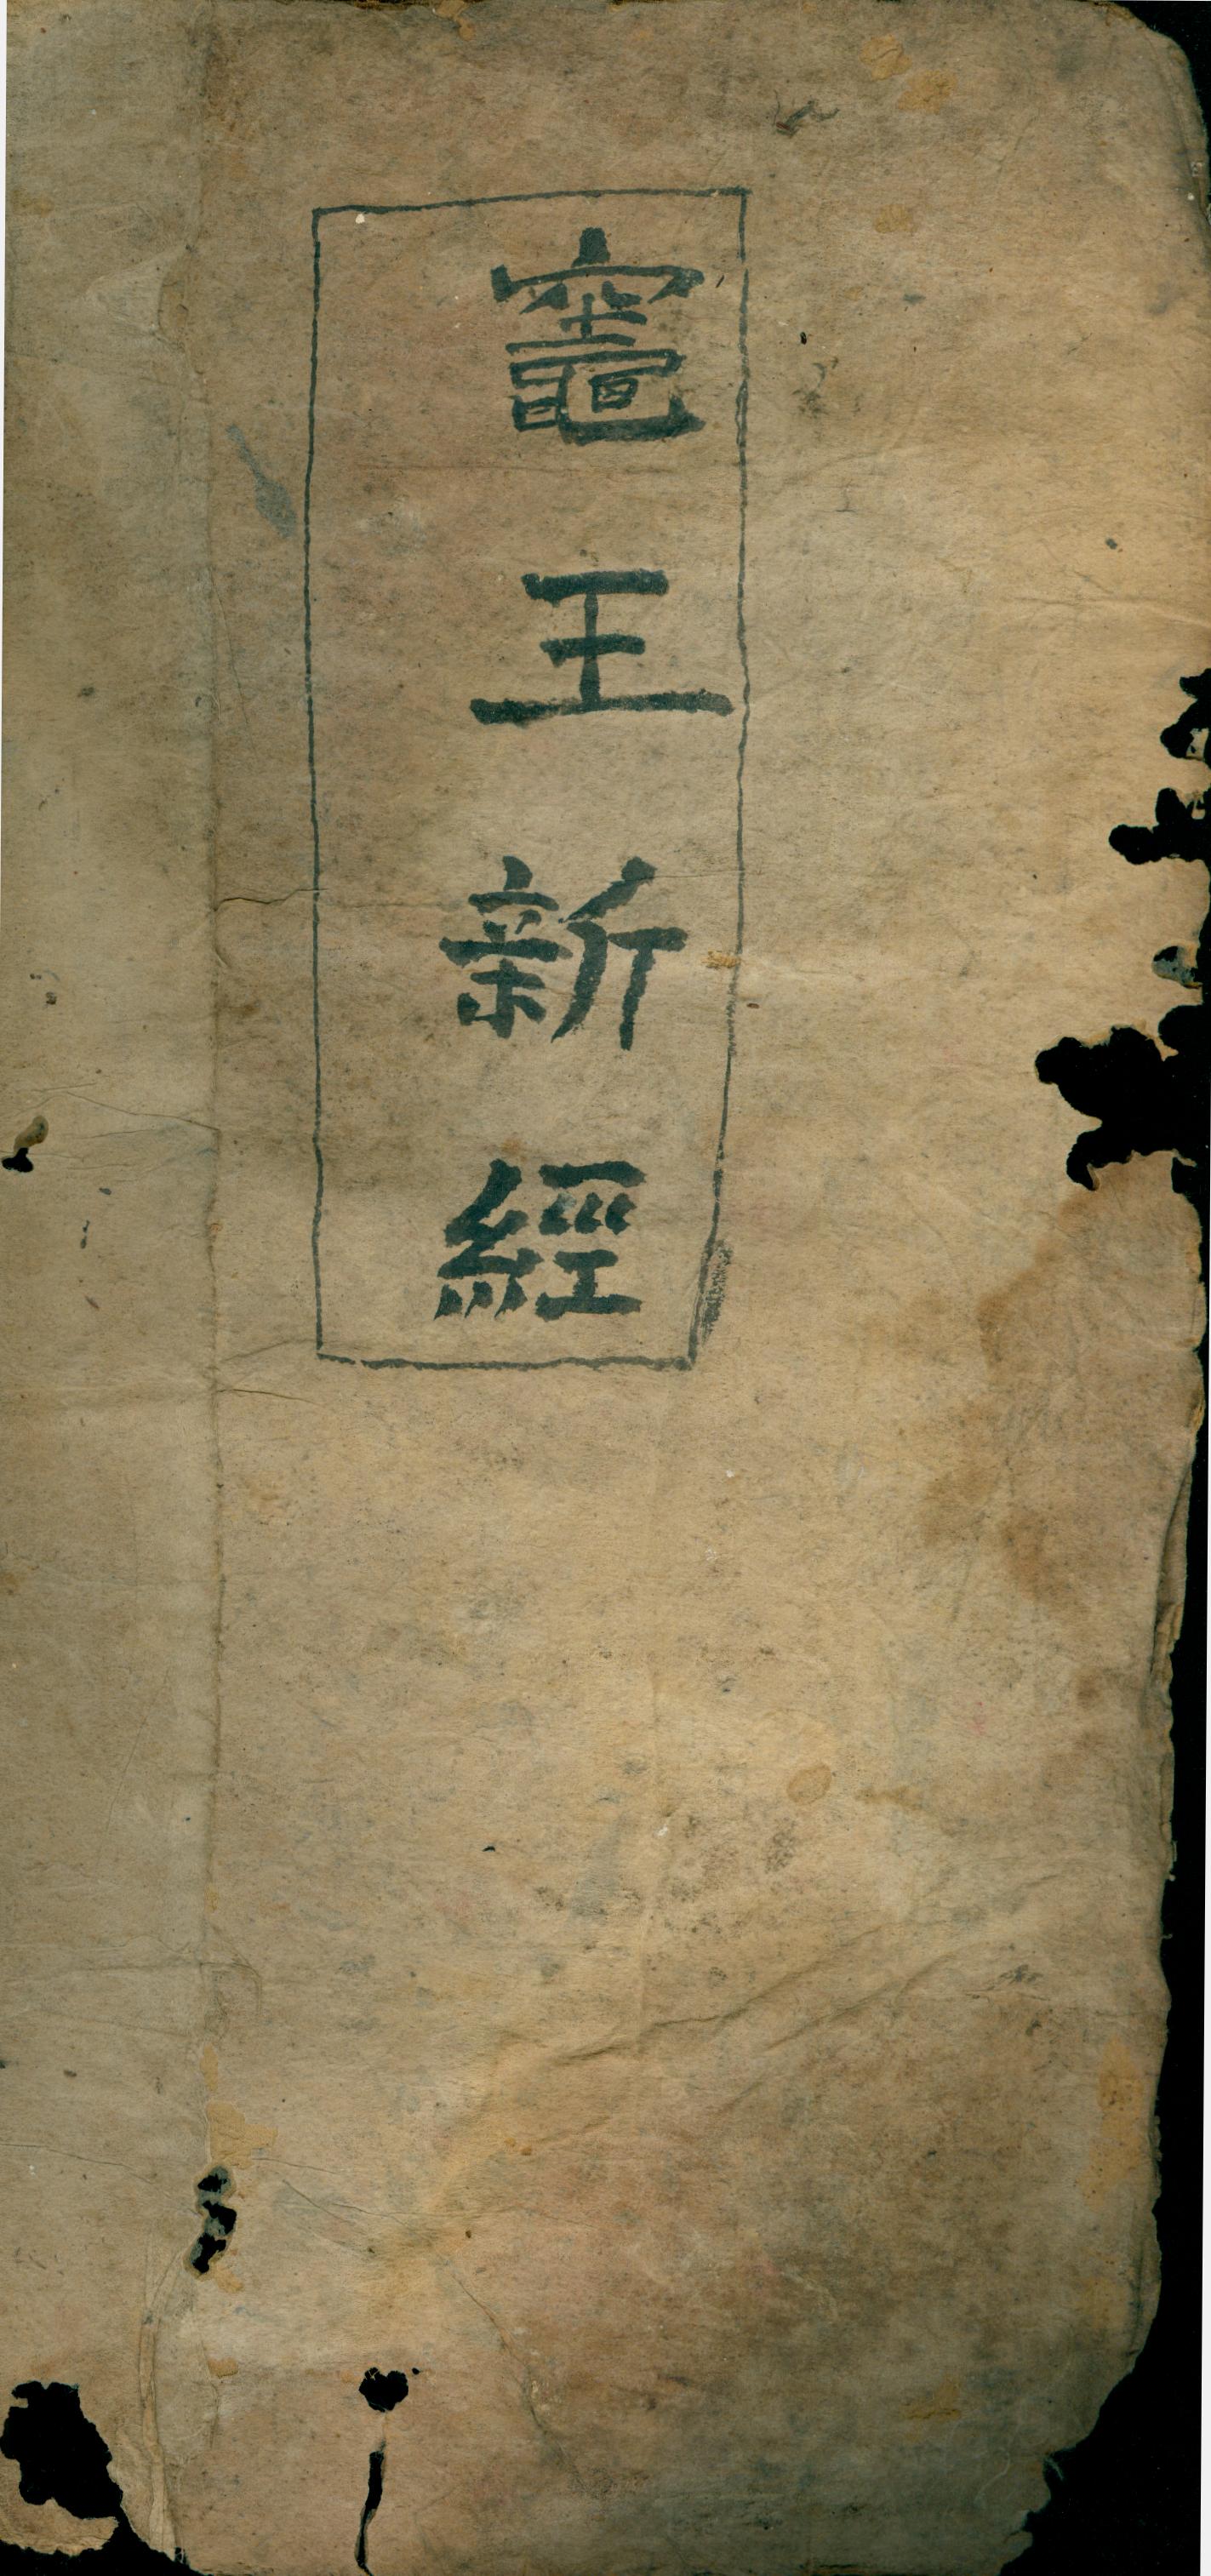 竈王新經